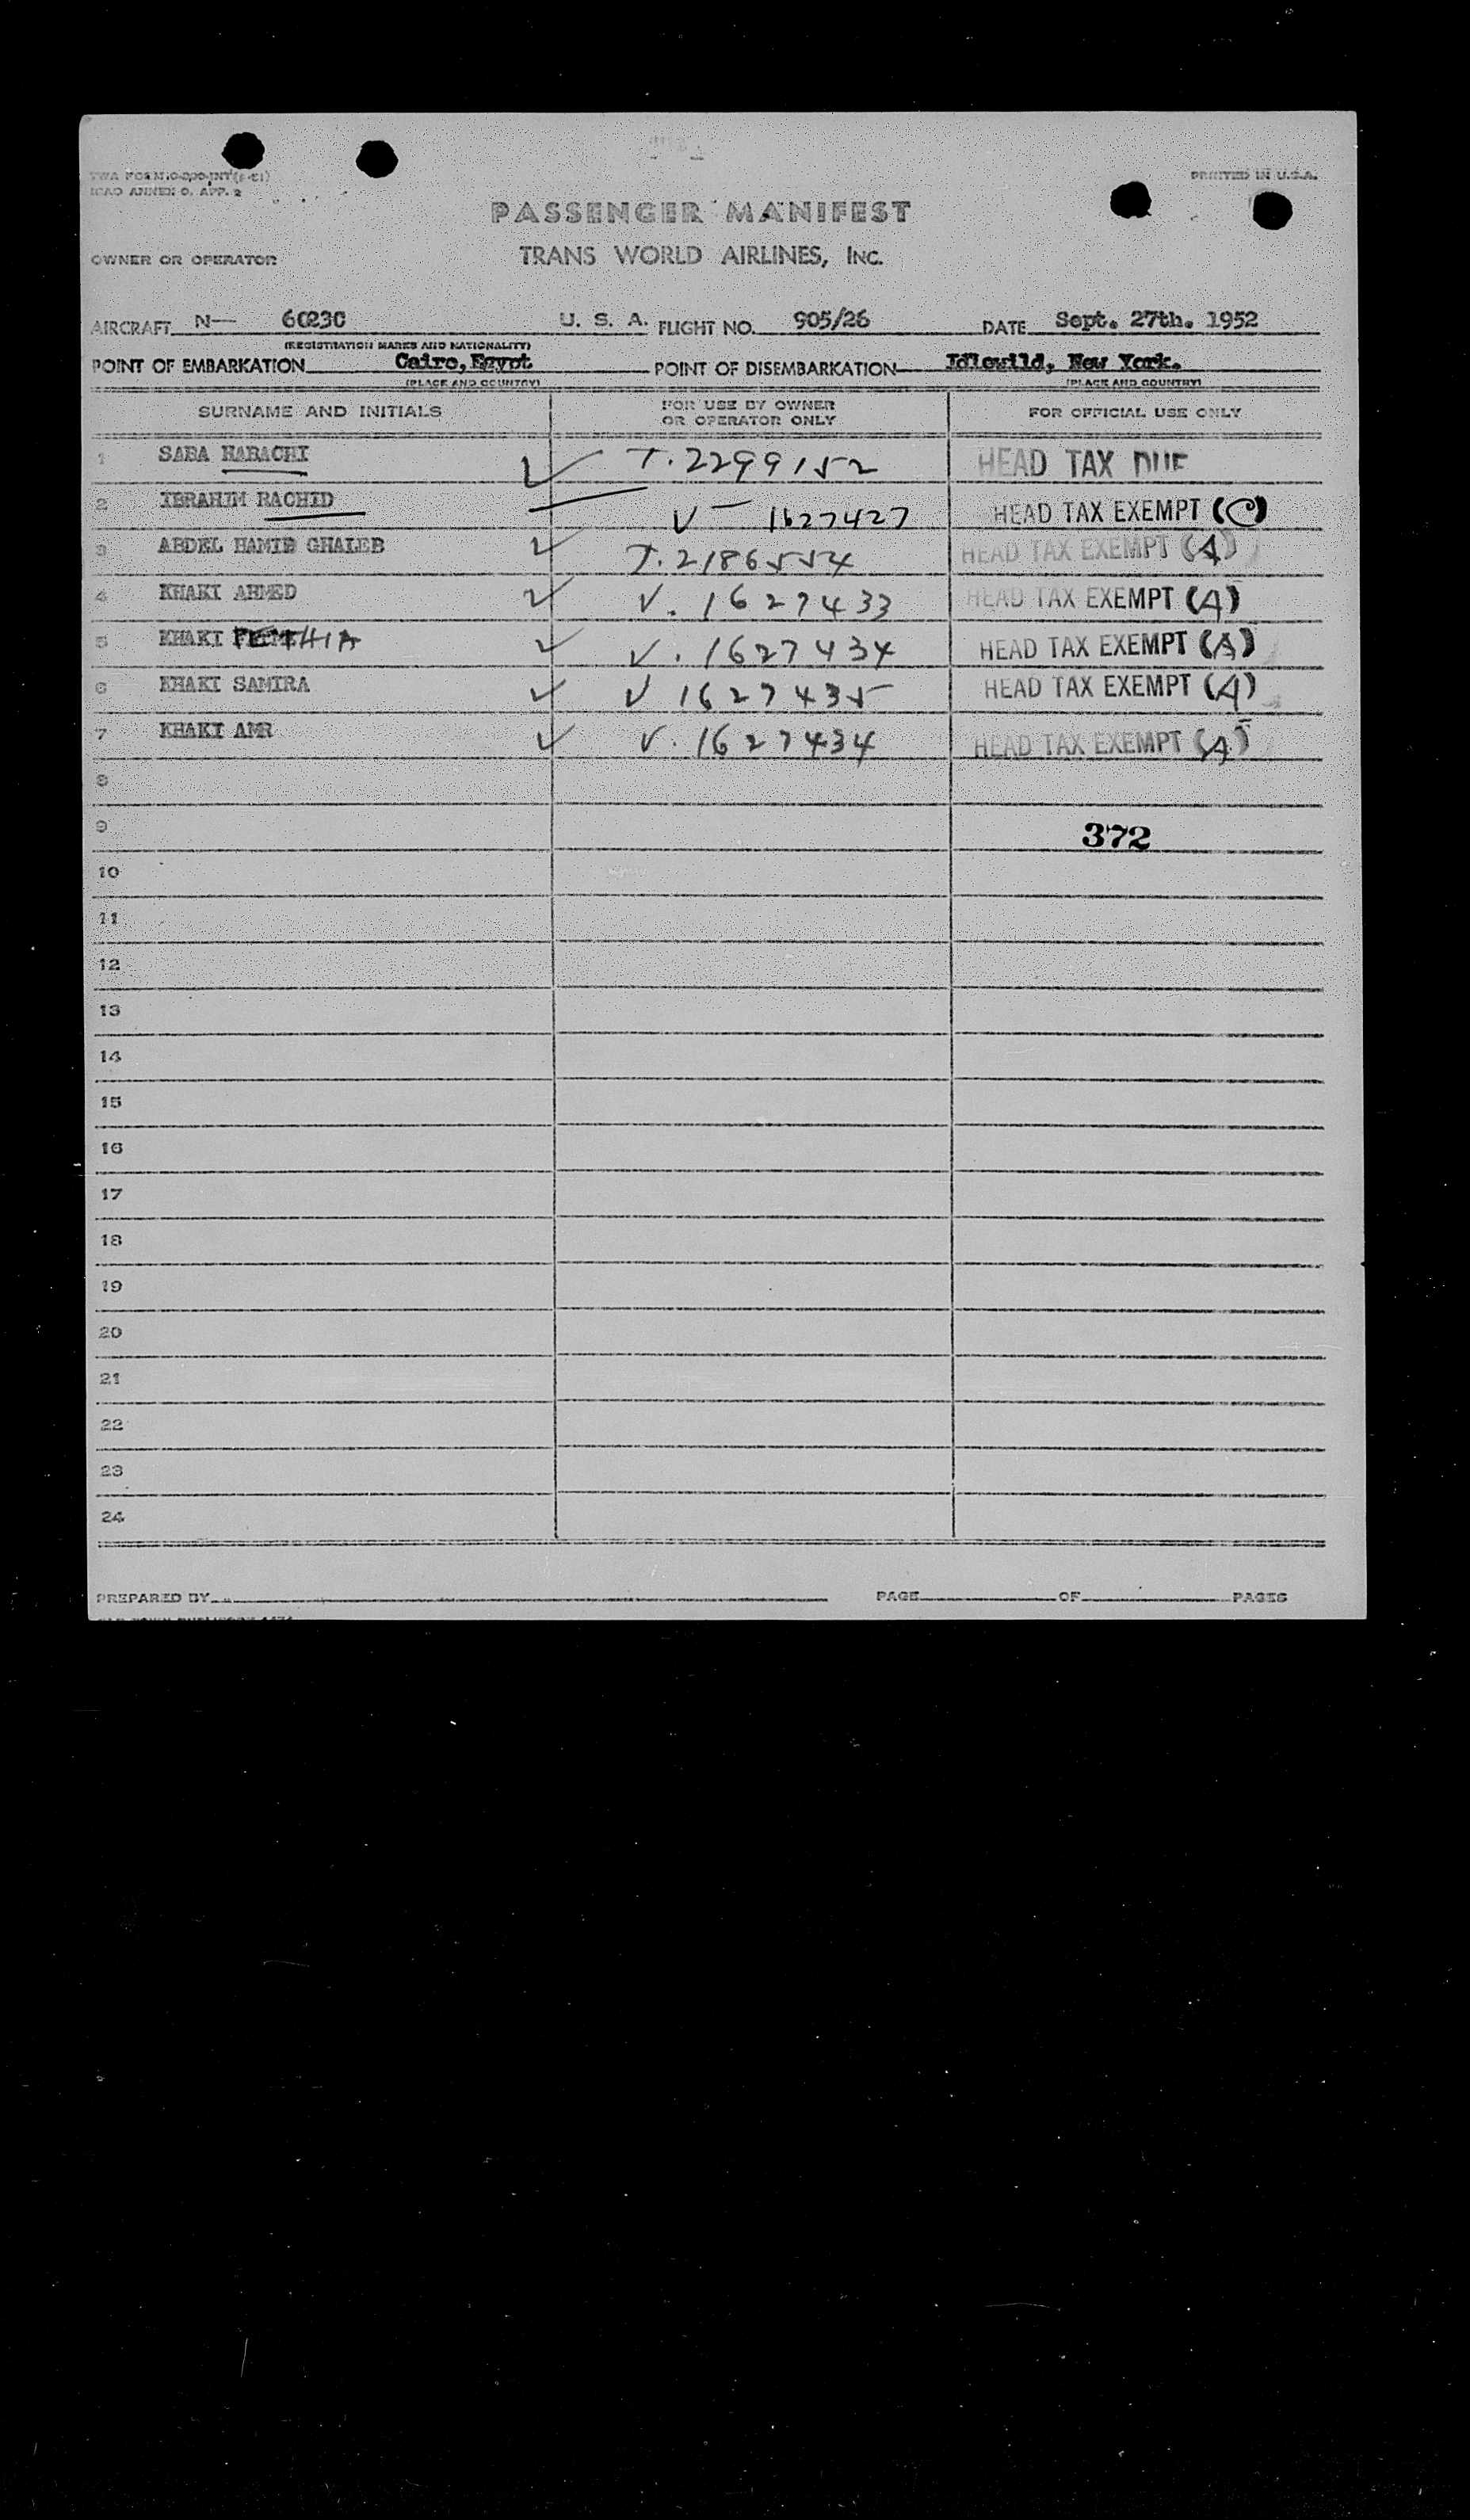 TWA FORM
ICAO ANNEX 9, APP. 2
PRINTED IN U.S.A.
PASSENGER MANIFEST
OWNER OR OPERATOR
TRANS WORLD AIRLINES, INC.
AIRCRAFT N— 6023C U. S. A. FLIGHT NO. 905/26 DATE Sept. 27th. 1952
(REGISTRATION MARKS AND NATIONALITY)
POINT OF EMBARKATION Cairo, Egypt POINT OF DISEMBARKATION Idlewild, New York.
(PLACE AND COUNTRY) (PLACE AND COUNTRY)
SURNAME AND INITIALS FOR USE BY OWNER OR OPERATOR ONLY FOR OFFICIAL USE ONLY
1 SABA HABACHI T. 2299152 HEAD TAX DUE
2 IBRAHIM RACHID V — 1627427 HEAD TAX EXEMPT (C)
3 ABDEL HAMID GHALEB T. 2186554 HEAD TAX EXEMPT (A)
4 KHAKI AHMED V. 1627433 HEAD TAX EXEMPT (A)
5 KHAKI FETHIA V. 1627434 HEAD TAX EXEMPT (A)
6 KHAKI SAMIRA V 1627435 HEAD TAX EXEMPT (A)
7 KHAKI AMR V. 1627434 HEAD TAX EXEMPT (A)
8
9 372
10
11
12
13
14
15
16
17
18
19
20
21
22
23
24
PREPARED BY PAGE OF PAGES